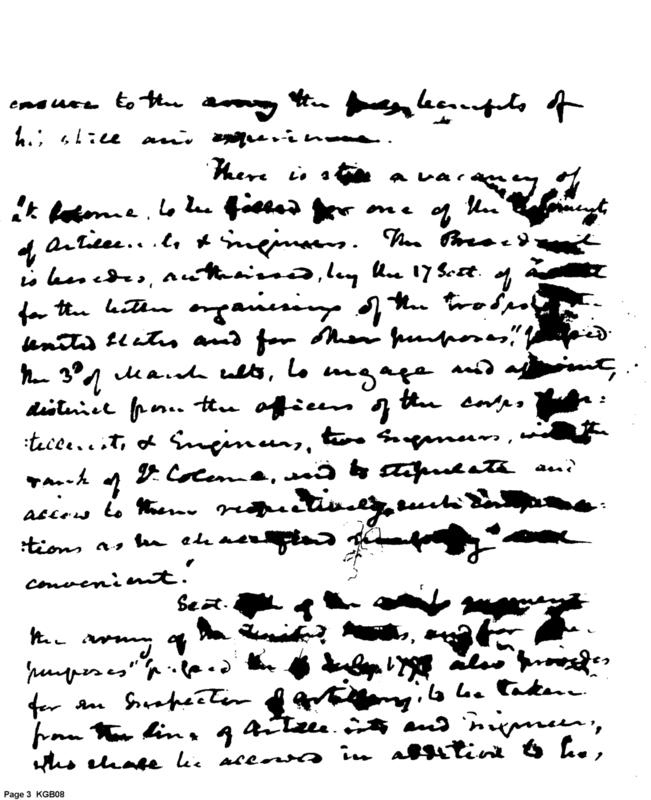 to the army the benefits of
his skill and experience.
There is still a vacancy of
Lt Colonel, to be filled for one of the Regiments
of Artillerists & Engineers. The President
is besides, authorised, by the 17 Sect. of
for the better organising of the troops of the
United States and for other purposes," passed
the 3d of March ulto, to engage and appoint,
distinct from the officers of the corps
:tillerists & Engineers, two Engineers, with the
rank of Lt Colonel, and to stipulate and
allow to them respectively, such compensa:
:tions as he shall find necessary and
convenient."
Sect. of the
the army of the United States, and for other
purposes" passed the July 1798 also provides
for an Inspector of Artillery, to be taken
from the line of Artillerists and Engineers,
who shall be allowed in addition to his,
Page 3 KGB08